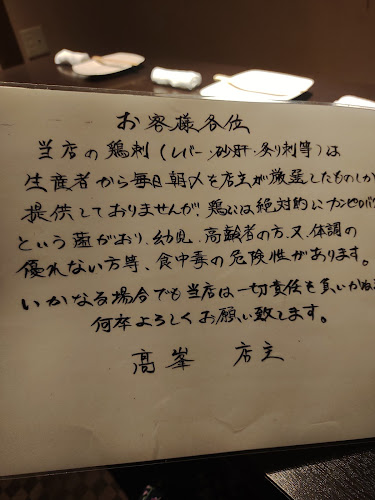 お客様各位
当店の鶏刺（レバー・砂肝・炙り刺等）は
生産者から毎日朝〆を店主が厳選したものしか
提供しておりませんが、鶏には絶対的にカンピロバク
という菌がおり、幼児、高齢者の方、又、体調の
優れない方等、食中毒の危険性があります。
いかなる場合でも当店は一切責任を負いかね
何卒よろしくお願い致します。
高峯 店主